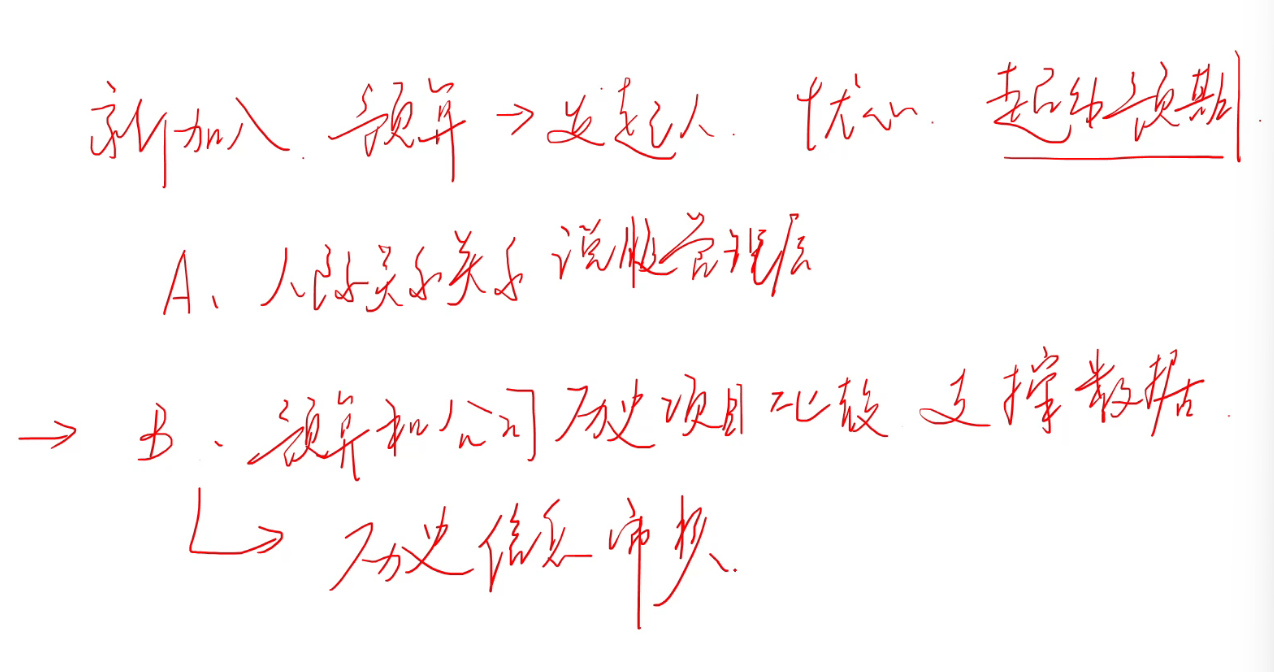 新加入. 预算→发起人. 忧心. 超出预期.
A、人际关系关系 说服管理层
→ B. 预算和公司历史项目比较 支撑数据.
↳ 历史信息审核.